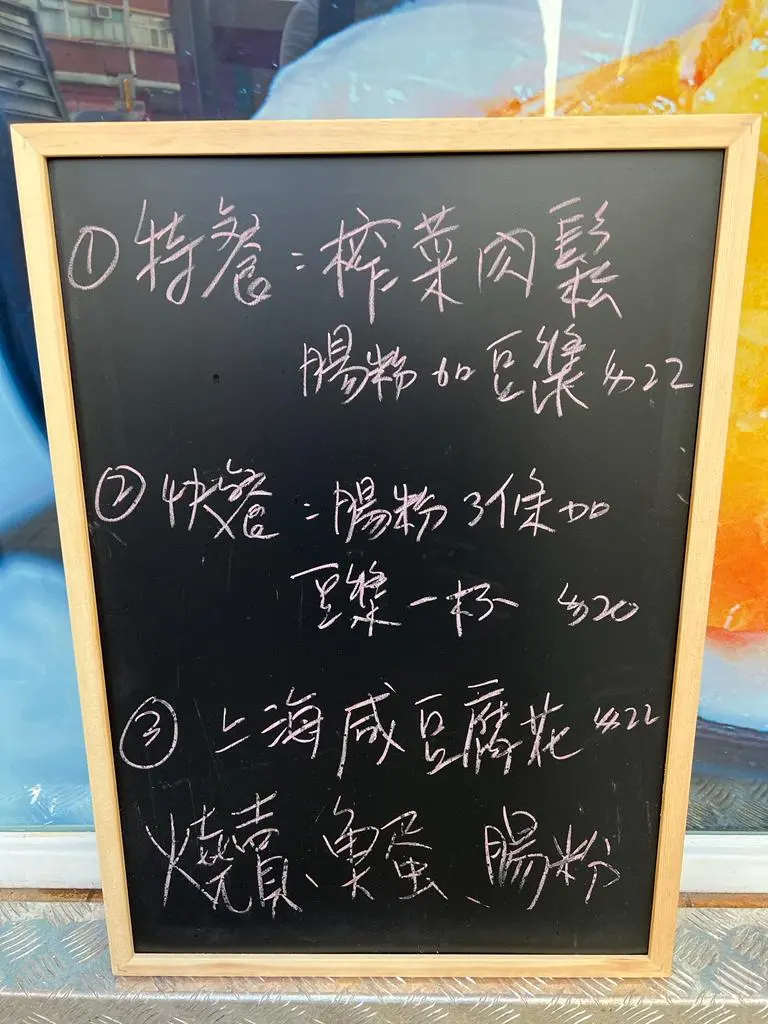 ① 特餐：榨菜肉鬆
腸粉加豆漿 $22
② 快餐：腸粉3條加
豆漿一杯 $20
③ 上海咸豆腐花 $22
燒賣、魚蛋、腸粉